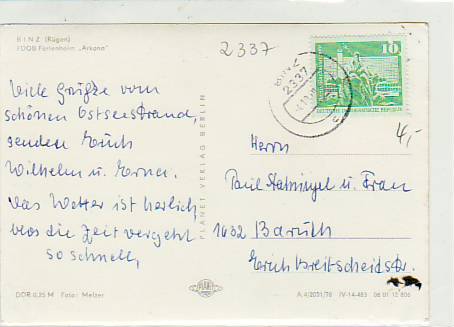 BINZ (Rügen)
FDGB Ferienheim „Arkona"
2337
BINZ
2337
10
DEUTSCHE DEMOKRATISCHE REPUBLIK
4,-
Viele Grüße vom
schönen Ostseestrand,
senden Euch
Wilhelm u. Erna.
Das Wetter ist herlich,
blos die Zeit vergeht
so schnell,
PLANET VERLAG BERLIN
Herrn
Paul u. Frau
1632 Baruth
Erich Breitscheidstr.
PLANET
DDR 0,25 M Foto: Melzer
A 4/2031/76 IV-14-483 06 01 12 806